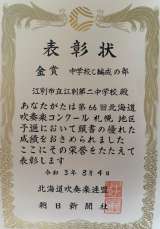 表彰状
金賞 中学校C編成の部
江別市立江別第二中学校殿
あなたがたは第66回北海道
吹奏楽コンクール札幌地区
予選において頭書の優れた
成績をおさめられました
ここにその栄誉をたたえて
表彰します
令和3年8月4日
北海道吹奏楽連盟
朝日新聞社